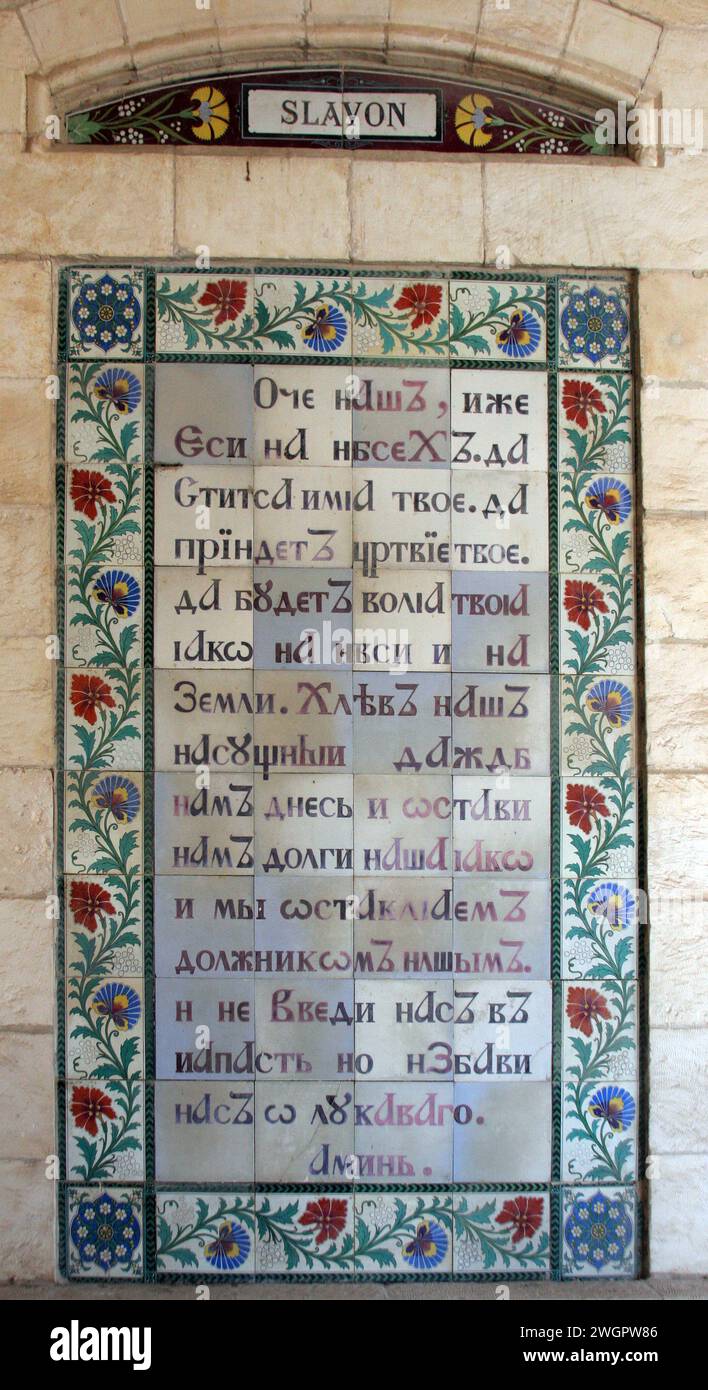 SLAVON
Оче нашъ, иже
Єси на нбсєхЪ. да
Ститса имꙗ твоє. да
прїндєтЪ цртвїє твоє.
да бꙋдєтЪ волꙗ твоꙗ
ꙗкѡ на нвси и на
Земли. ХлѣвЪ нашЪ
насꙋщныи даждб
намЪ днєсь и ѡстави
намЪ долги наша ꙗкѡ
и мы ѡстаклꙗємЪ
должникѡмЪ нашымЪ.
н нє Ввєди насЪ вЪ
иапасть но нЗбави
насЪ ѡ лꙋкаваго.
аминь.
alamy
Image ID: 2WGPW86
www.alamy.com